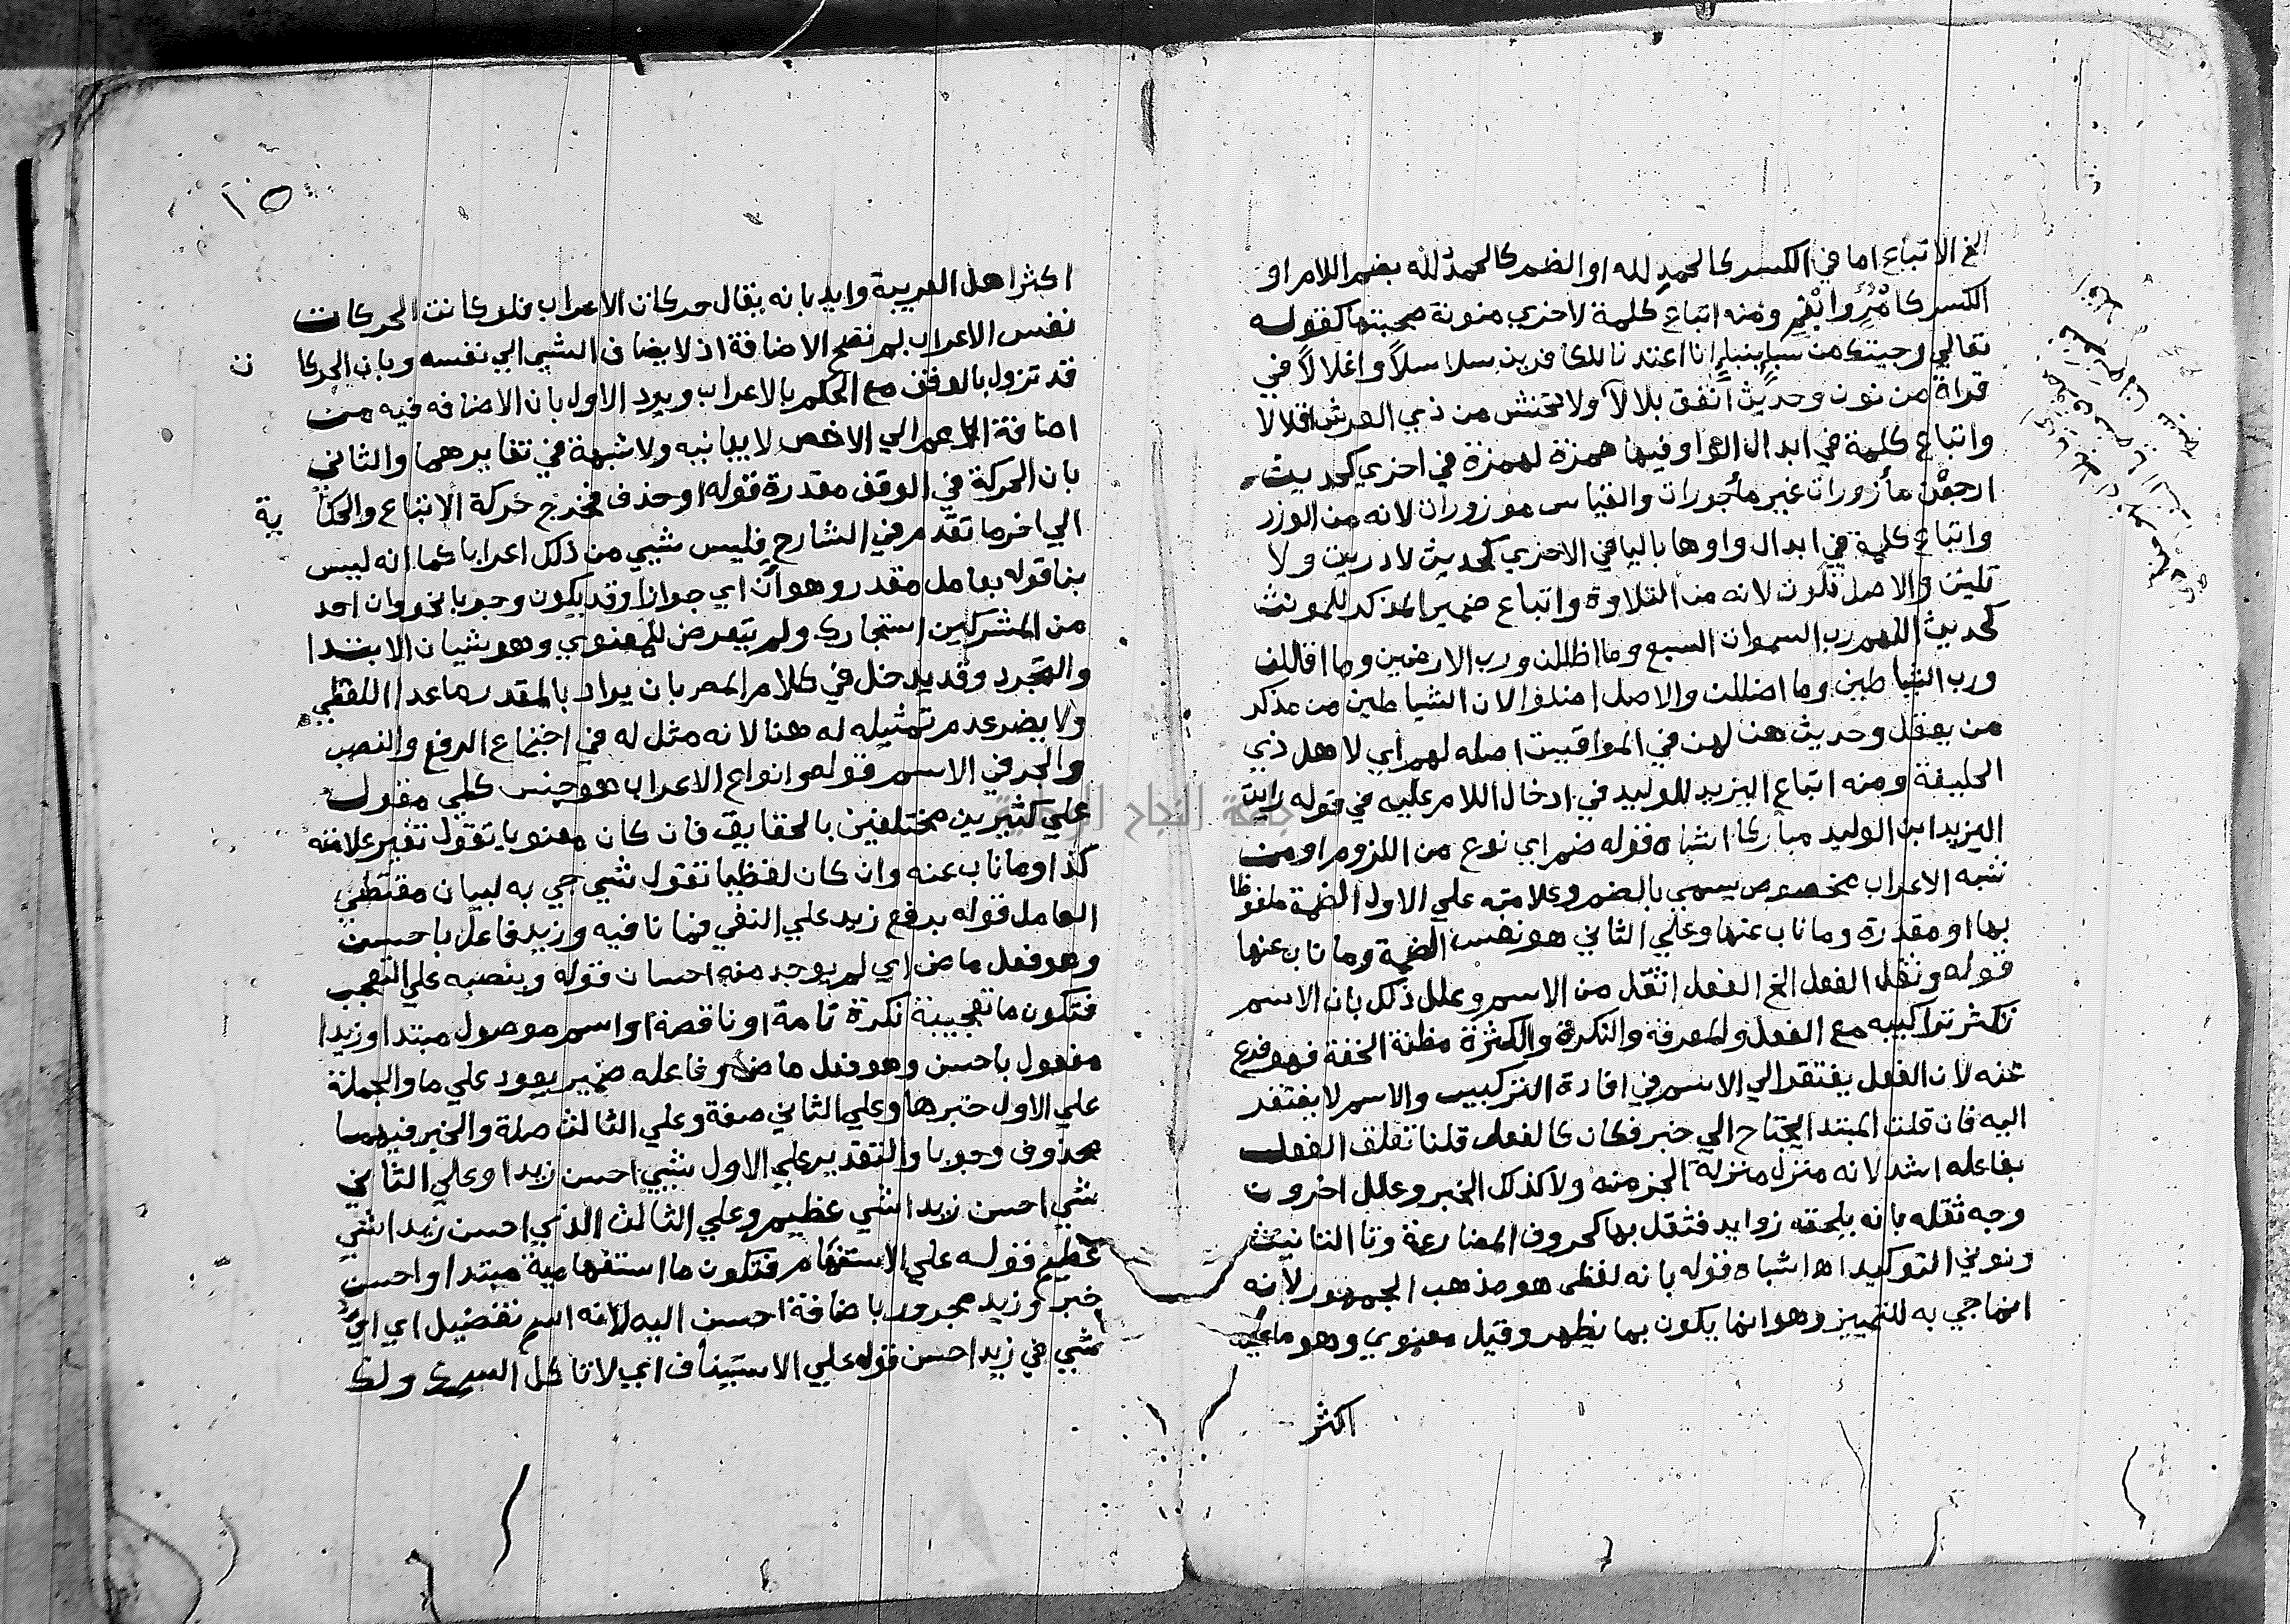 الخ الاتباع اما في الكسر كالحمدِ لله او الضم كالحمدُ لُله بضم اللام او
الكسر كامْرِؤ وابْنِم ومنه اتباع كلمة لاخري منونة صحبتها كقوله
تعالي وجيتك من سبإٍ بنبإٍ انا اعتدنا للكافرين سلاسلاً واغلالاً في
قراة من نون وحديث انفق بلالاً ولا تخش من ذي العرش اقلالا
واتباع كلمة في ابدال الواو فيها همزة لهمزة في اخري كحديث
ارجعْن مأزورات غير مأجورات والقياس موزورات لانه من الوزر
واتباع كلمة في ابدال واوها باليا في الاخري كحديث لا دريت ولا
تليت والاصل تلوت لانه من التلاوة واتباع ضمير المذكر للمونث
كحديث اللهم رب السموات السبع وما اظللن ورب الارضين وما اقللن
ورب الشياطين وما اضللن والاصل اضلوا لان الشياطين من مذكر
من يعقل وحديث هن لهن في المواقيت اصله لهم اي لاهل ذي
الحليفة ومنه اتباع اليزيد للوليد في ادخال اللام عليه في قوله رايت
اليزيد ابن الوليد مباركا اشاه قوله ضم اي نوع من اللزوم او من
شبه الاعراب مخصوص يسمي بالضم وعلامته علي الاول الضمة ملفوظا
بها او مقدرة وما ناب عنها وعلي الثاني هو نفس الضمة وما ناب عنها
قوله وثقل الفعل الخ الفعل اثقل من الاسم وعلل ذلك بان الاسم
تكثر تراكيبه مع الفعل والمعرفة والنكرة والكثرة مظنة الخفة فهو فرع
عنه لان الفعل يفتقر الي الاسم في افادة التركيب والاسم لا يفتقر
اليه فان قلت المبتدا يحتاج الي خبر فكان كالفعل قلنا تعلق الفعل
بفاعله اشد لانه منزل منزلة الجز منه ولا كذلك الخبر وعلل اخرون
وجه ثقله بانه يلحقه زوايد فثقل بها كحروف المضارعة وتا التانيث
ونوني التوكيد اه اشباه قوله بانه لفظي هو مذهب الجمهور لانه
انما جي به للتمييز وهو انما يكون بما يظهر وقيل معنوي وهو ما عليه
اكثر
١٥
اكثر اهل العربية وايد بانه يقال حركات الاعراب فلو كانت الحركات
نفس الاعراب لم تصح الاضافة اذ لا يضاف الشي الي نفسه وبان الحركا ت
قد تزول بالوقف مع الحكم بالاعراب ويرد الاول بان الاضافه فيه من
اضافة الاعم الي الاخص لا بيانيه ولا شبهة في تغايرهما والثاني
بان الحركة في الوقف مقدرة قوله او حذف فخرج حركة الاتباع والحكا ية
الي اخر ما تقدم في الشارح فليس شيي من ذلك اعرابا كما انه ليس
بنا قوله بعامل مقدر وهو ان اي جوازا وقد يكون وجوبا نحو وان احد
من المشركين استجارك ولم يتعرض للمعنوي وهو شيان الابتدا
والتجرد وقد يدخل في كلام المص بان يراد بالمقدر ما عدا اللفظي
ولا يضر عدم تمثيله له هنا لانه مثل له في اجتماع الرفع والنصب
والجر في الاسم قوله وانواع الاعراب هو جنس كلي مقول
علي كثيرين مختلفين بالحقايق فان كان معنويا تقول تغير علامته
كذا وما ناب عنه وان كان لفظيا تقول شيي جي به لبيان مقتضي
العامل قوله برفع زيد علي النفي فما نافيه وزيد فاعل باحسن
وهو فعل ماض اي لم يوجد منه احسان قوله وينصبه علي التعجب
فتكون ما تعجبية نكرة تامة او ناقصة او اسم موصول مبتدا وزيدا
مفعول باحسن وهو فعل ماض وفاعله ضمير يعود علي ما والجملة
علي الاول خبرها وعلي الثاني صفة وعلي الثالث صلة والخبر فيهما
محذوف وجوبا والتقدير علي الاول شيي احسن زيدا وعلي الثاني
شي احسن زيدا شي عظيم وعلي الثالث الذي احسن زيدا شي
عظيم قوله علي الاستفهام فتكون ما استفهامية مبتدا واحسن
خبر وزيد مجرور باضافة احسن اليه لانه اسم تفضيل اي اي
شيي في زيد احسن قوله علي الاستيناف اي لا تاكل السمك ولك